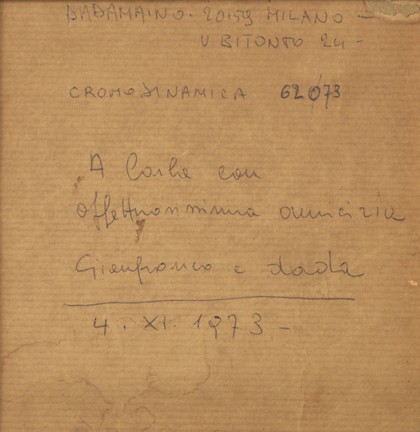 DADAMAINO - 20159 MILANO -
V. BITONTO 24 -
CROMODINAMICA 62/073
A Carla con
affettuosissima amicizia
Gianfranco e dada
4. XI. 1973 -